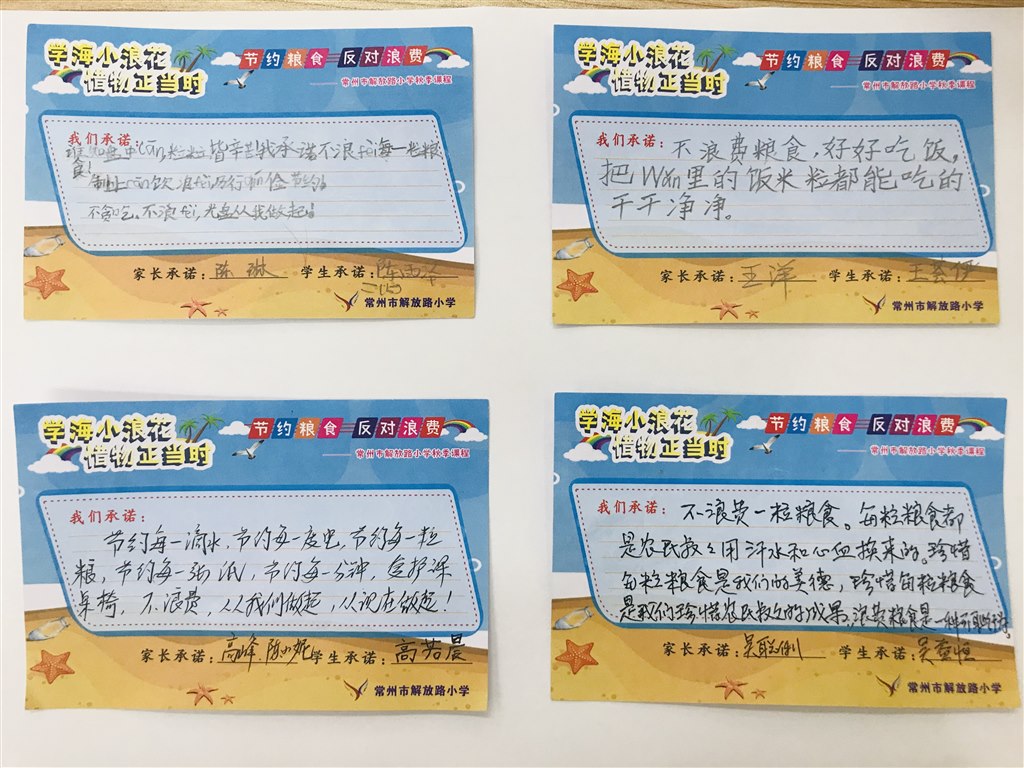 学海小浪花
惜物正当时
节约粮食 反对浪费
——常州市解放路小学秋季课程
我们承诺:
谁知盘中 粒粒皆辛苦我承诺不浪 每一 粮
食!
制止 饮 浪 厉行 俭 节约!
不贪吃。不浪 ,光盘从我做起!
家长承诺:陈琳 学生承诺:陈
常州市解放路小学
学海小浪花
惜物正当时
节约粮食 反对浪费
——常州市解放路小学秋季课程
我们承诺:
不浪费粮食,好好吃饭,
把Wǎn里的饭米粒都能吃的
干干净净。
家长承诺:王洋 学生承诺:王
常州市解放路小学
学海小浪花
惜物正当时
节约粮食 反对浪费
——常州市解放路小学秋季课程
我们承诺:
节约每一滴水,节约每一度电,节约每一粒
粮,节约每一张纸,节约每一分钟,爱护课
桌椅,不浪费,从我们做起,从现在做起!
家长承诺:高峰.陈小妮 学生承诺:高若晨
常州市解放路小学
学海小浪花
惜物正当时
节约粮食 反对浪费
——常州市解放路小学秋季课程
我们承诺:
不浪费一粒粮食。每粒粮食都
是农民叔叔用汗水和心血换来的。珍惜
每粒粮食是我们的美德,珍惜每粒粮食
是我们珍惜农民叔叔的成果。浪费粮食是一件可耻的事
家长承诺:吴聪俐 学生承诺:吴 恒
常州市解放路小学